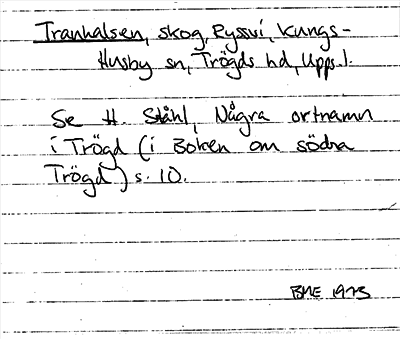 Tranhalsen, skog, Ryssvi, Kungs-
Husby sn, Trögds hd, Upps.l.
Se H. Ståhl, Några ortnamn
i Trögd (i Boken om södra
Trögd) s. 10.
1973